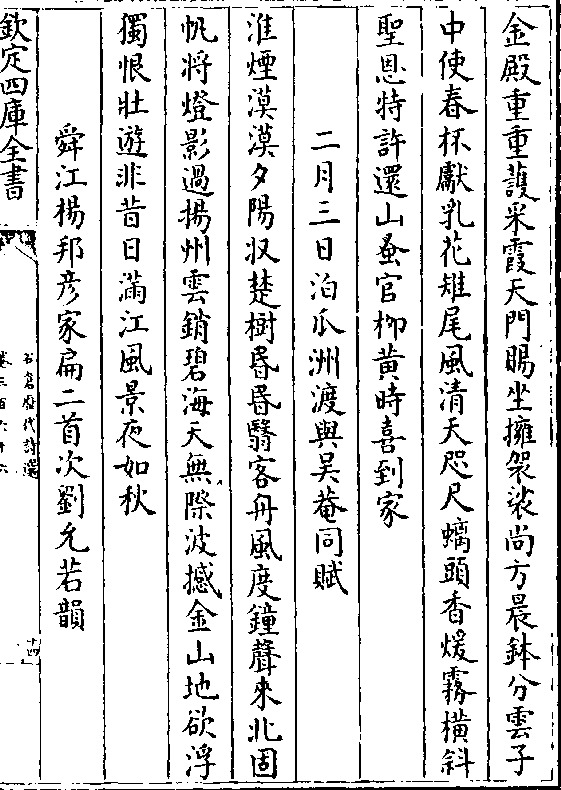 金殿重重䕶采霞天門賜坐擁袈裟尚方晨鉢分雲子
中使春杯獻乳花雉尾風清天咫尺螭頭香煖霧橫斜
聖恩特許還山蚤官柳黄時喜到家
二月三日泊瓜洲渡與吴菴同賦
淮煙漠漠夕陽収楚樹昬昬翳客舟風度鐘聲來北固
帆將燈影過揚州雲銷碧海天無際波撼金山地欲浮
獨恨壯遊非昔日滿江風景夜如秋
舜江楊邦彦家扁二首次劉允若韻
欽定四庫全書
石倉歴代詩選
卷三百六十六
十四